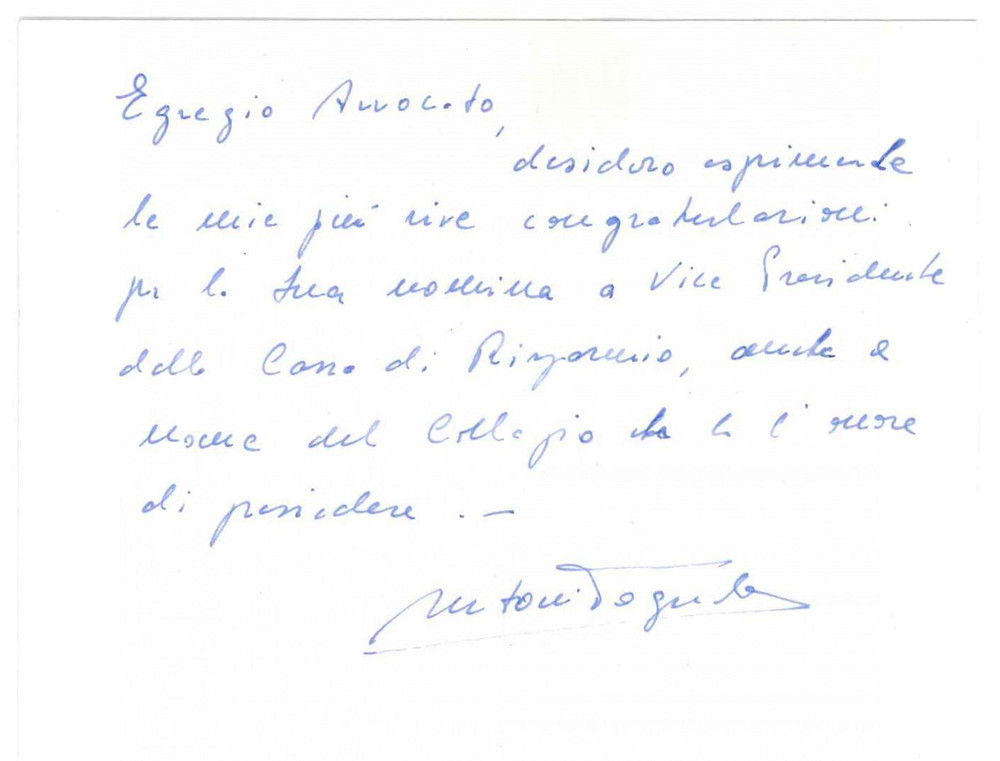 Egregio Avvocato,
desidero esprimerLe
le mie più vive congratulazioni
per la Sua nomina a Vice Presidente
della Cassa di Risparmio, anche a
nome del Collegio che ho l'onore
di presiedere . —